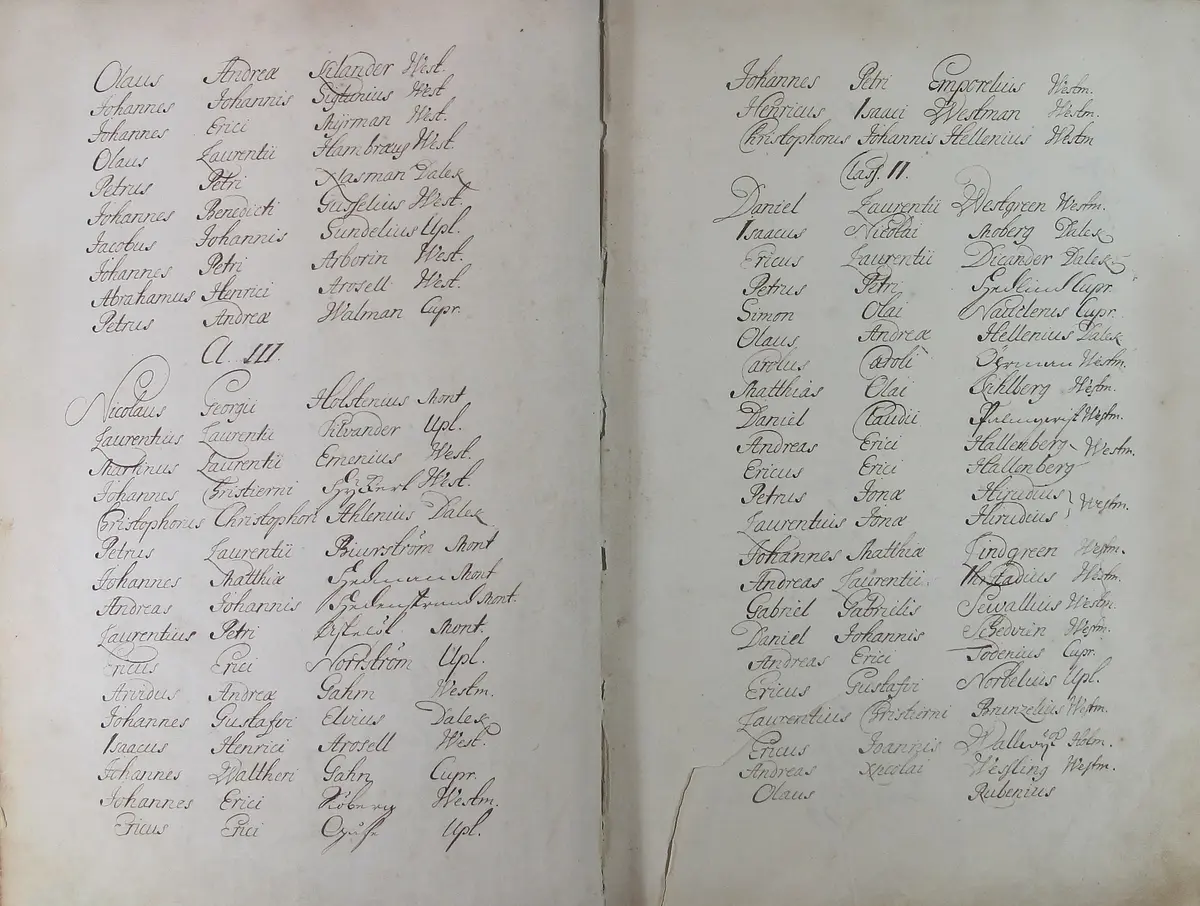 Olaus Andreæ Kilander West.
Johannes Johannis Sigtunius West
Johannes Erici Myrman West.
Olaus Laurentii Hambræus West.
Petrus Petri Klasman Dalek
Johannes Benedicti Gusselius West.
Jacobus Johannis Sundelius Upl.
Johannes Petri Arborin West.
Abrahamus Henrici Arosell West.
Petrus Andreæ Walman Cupr.
Cl. III.
Nicolaus Georgii Holstenius Mont
Laurentius Laurentii Silvander Upl.
Martinus Laurentii Emenius West.
Johannes Christierni West.
Christophorus Christophori Ahlenius Dalek
Petrus Laurentii Biurström Mont
Johannes Matthiæ Hedman Mont
Andreas Johannis Hedenstrand Mont.
Laurentius Petri Mont.
Ericus Erici Norrström Upl.
Arvidus Andreæ Gahm Westm.
Johannes Gustafvi Elvius Dalek
Isaacus Henrici Arosell West.
Johannes Waltheri Gahn Cupr.
Johannes Erici Westm.
Ericus Erici Upl.
Johannes Petri Emporelius Westm.
Henricus Isaaci Westman Westm.
Christophorus Johannis Hellenius Westm
Class. II.
Daniel Laurentii Westgreen Westm.
Isaacus Nicolai Moberg Dalek
Ericus Laurentii Dicander Dalek
Petrus Petri Cupr.
Simon Olai Nauclerus Cupr.
Olaus Andreæ Hellenius Dalek
Carolus Caroli Öhrman Westm.
Matthias Olai Kihlberg Westm.
Daniel Claudii Palmqwist Westm.
Andreas Erici Hallenberg Westm.
Ericus Erici Hallenberg
Petrus Jonæ Hirudius Westm.
Laurentuis Jonæ Hirudeius
Johannes Matthiæ Lindgreen Westm.
Andreas Laurentii Westm.
Gabriel Gabrielis Sewallius Westm.
Daniel Johannis Schedvin Westm.
Andreas Erici Tobenius Cupr.
Ericus Gustafvi Norbelius Upl.
Laurentius Christierni Brunzelius Westm.
Ericus Joannis Holm.
Andreas Nicolai Wessling Westm.
Olaus Rubenius